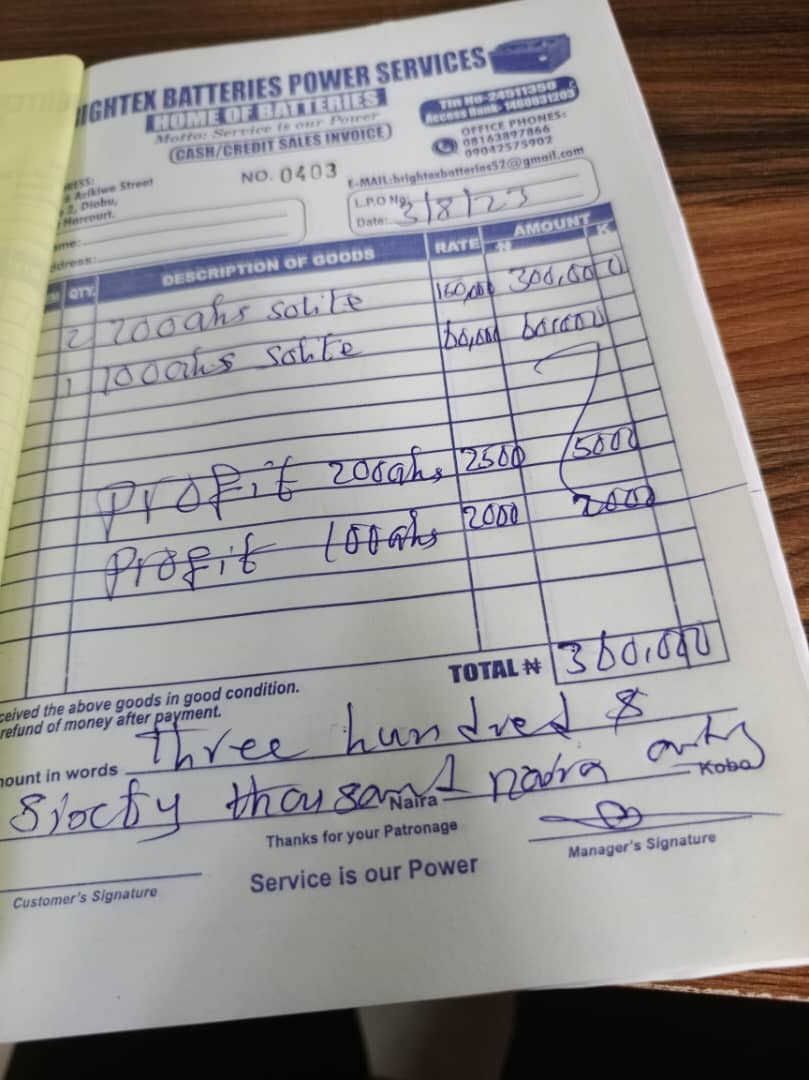 IGHTEX BATTERIES POWER SERVICES
HOME OF BATTERIES
Motto: Service is our Power
(CASH/CREDIT SALES INVOICE)
Tin No-24911350
Access Bank- 1460631203
OFFICE PHONES:
08163897866
09042575902
E-MAIL:brightexbatteries52@gmail.com
RESS:
Arikiwe Street
2, Diobu,
Harcourt.
NO. 0403
L.P.O No:
Date: 3/8/23
ame:
ddress:
QTY. DESCRIPTION OF GOODS RATE AMOUNT
₦ K
2 200ahs solite 150,000 300,000
1 100ahs solite 60,000 60,000
Profit 200ahs 2500 5000
Profit 100ahs 2000 2000
TOTAL ₦ 360,000
ceived the above goods in good condition.
refund of money after payment.
mount in words Three hundred &
Sixty thousand Naira naira only Kobo
Thanks for your Patronage
Customer's Signature
Service is our Power
Manager's Signature